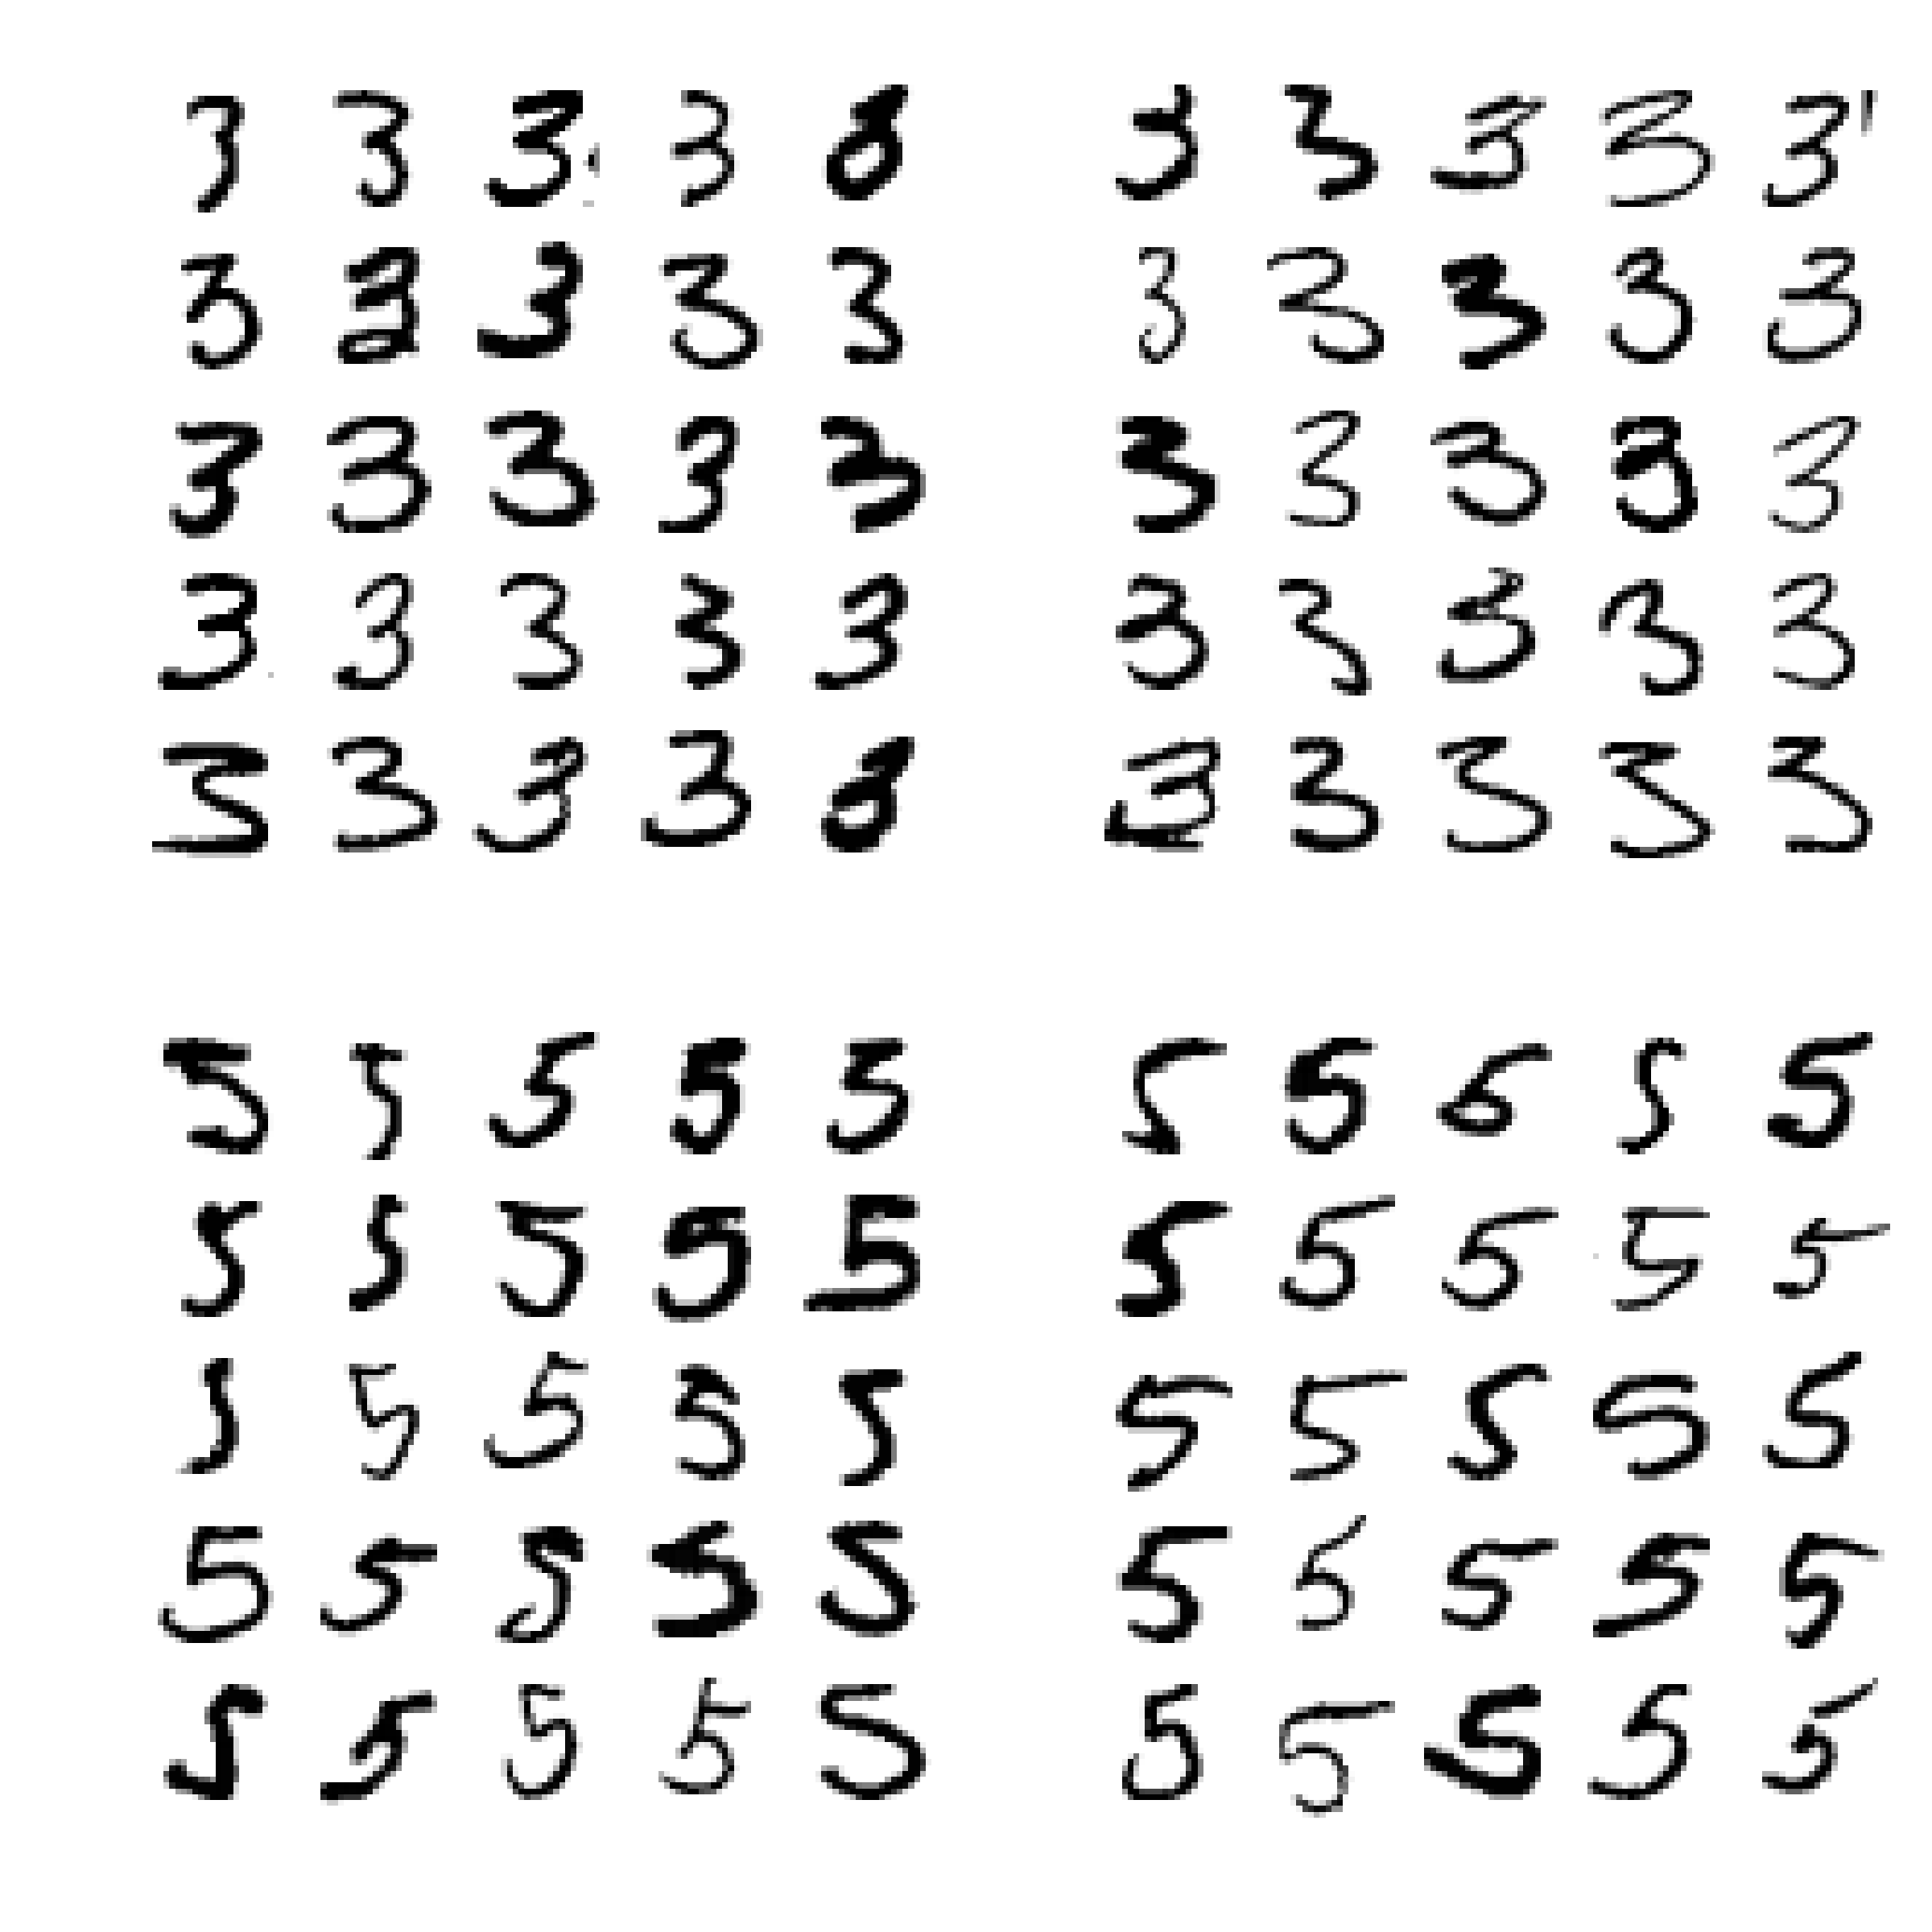 3 3 3 3 3 3 3 3 3 3
3 3 3 3 3 3 3 3 3 3
3 3 3 3 3 3 3 3 3 3
3 3 3 3 3 3 3 3 3 3
3 3 3 3 3 3 3 3 3 3
5 5 5 5 5 5 5 5 5 5
5 5 5 5 5 5 5 5 5 5
5 5 5 5 5 5 5 5 5 5
5 5 5 5 5 5 5 5 5 5
5 5 5 5 5 5 5 5 5 5